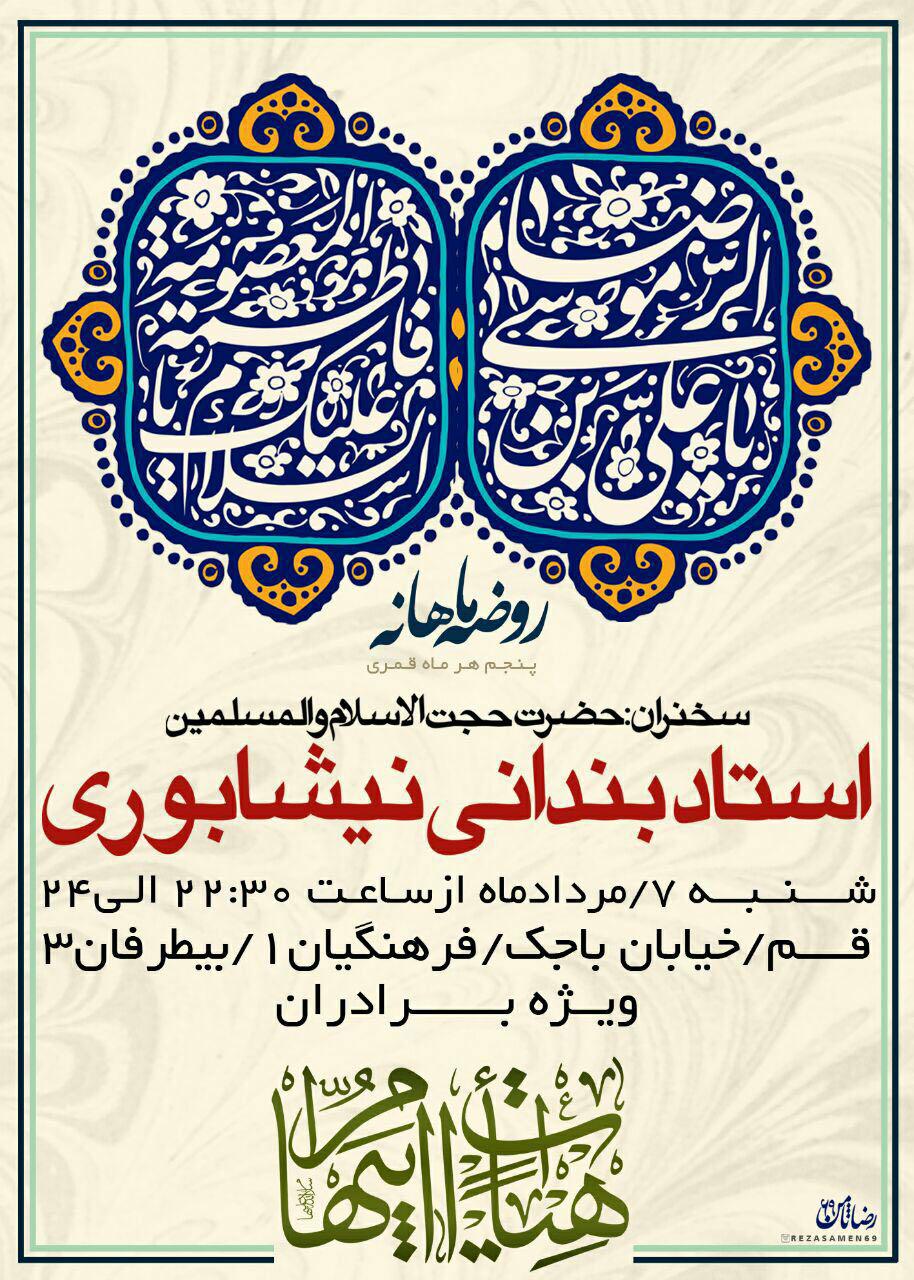 یا علی بن موسی الرضا
السلام علیک یا فاطمة المعصومة
روضه ماهانه
پنجم هر ماه قمری
سخنران:حضرت حجت الاسلام والمسلمین
استاد بندانی نیشابوری
شنبه ۷/مردادماه از ساعت ۲۲:۳۰ الی ۲۴
قم/خیابان باجک/فرهنگیان۱/بیطرفان۳
ویژه برادران
هیات
رضا ثامن ۶۹
REZASAMEN69